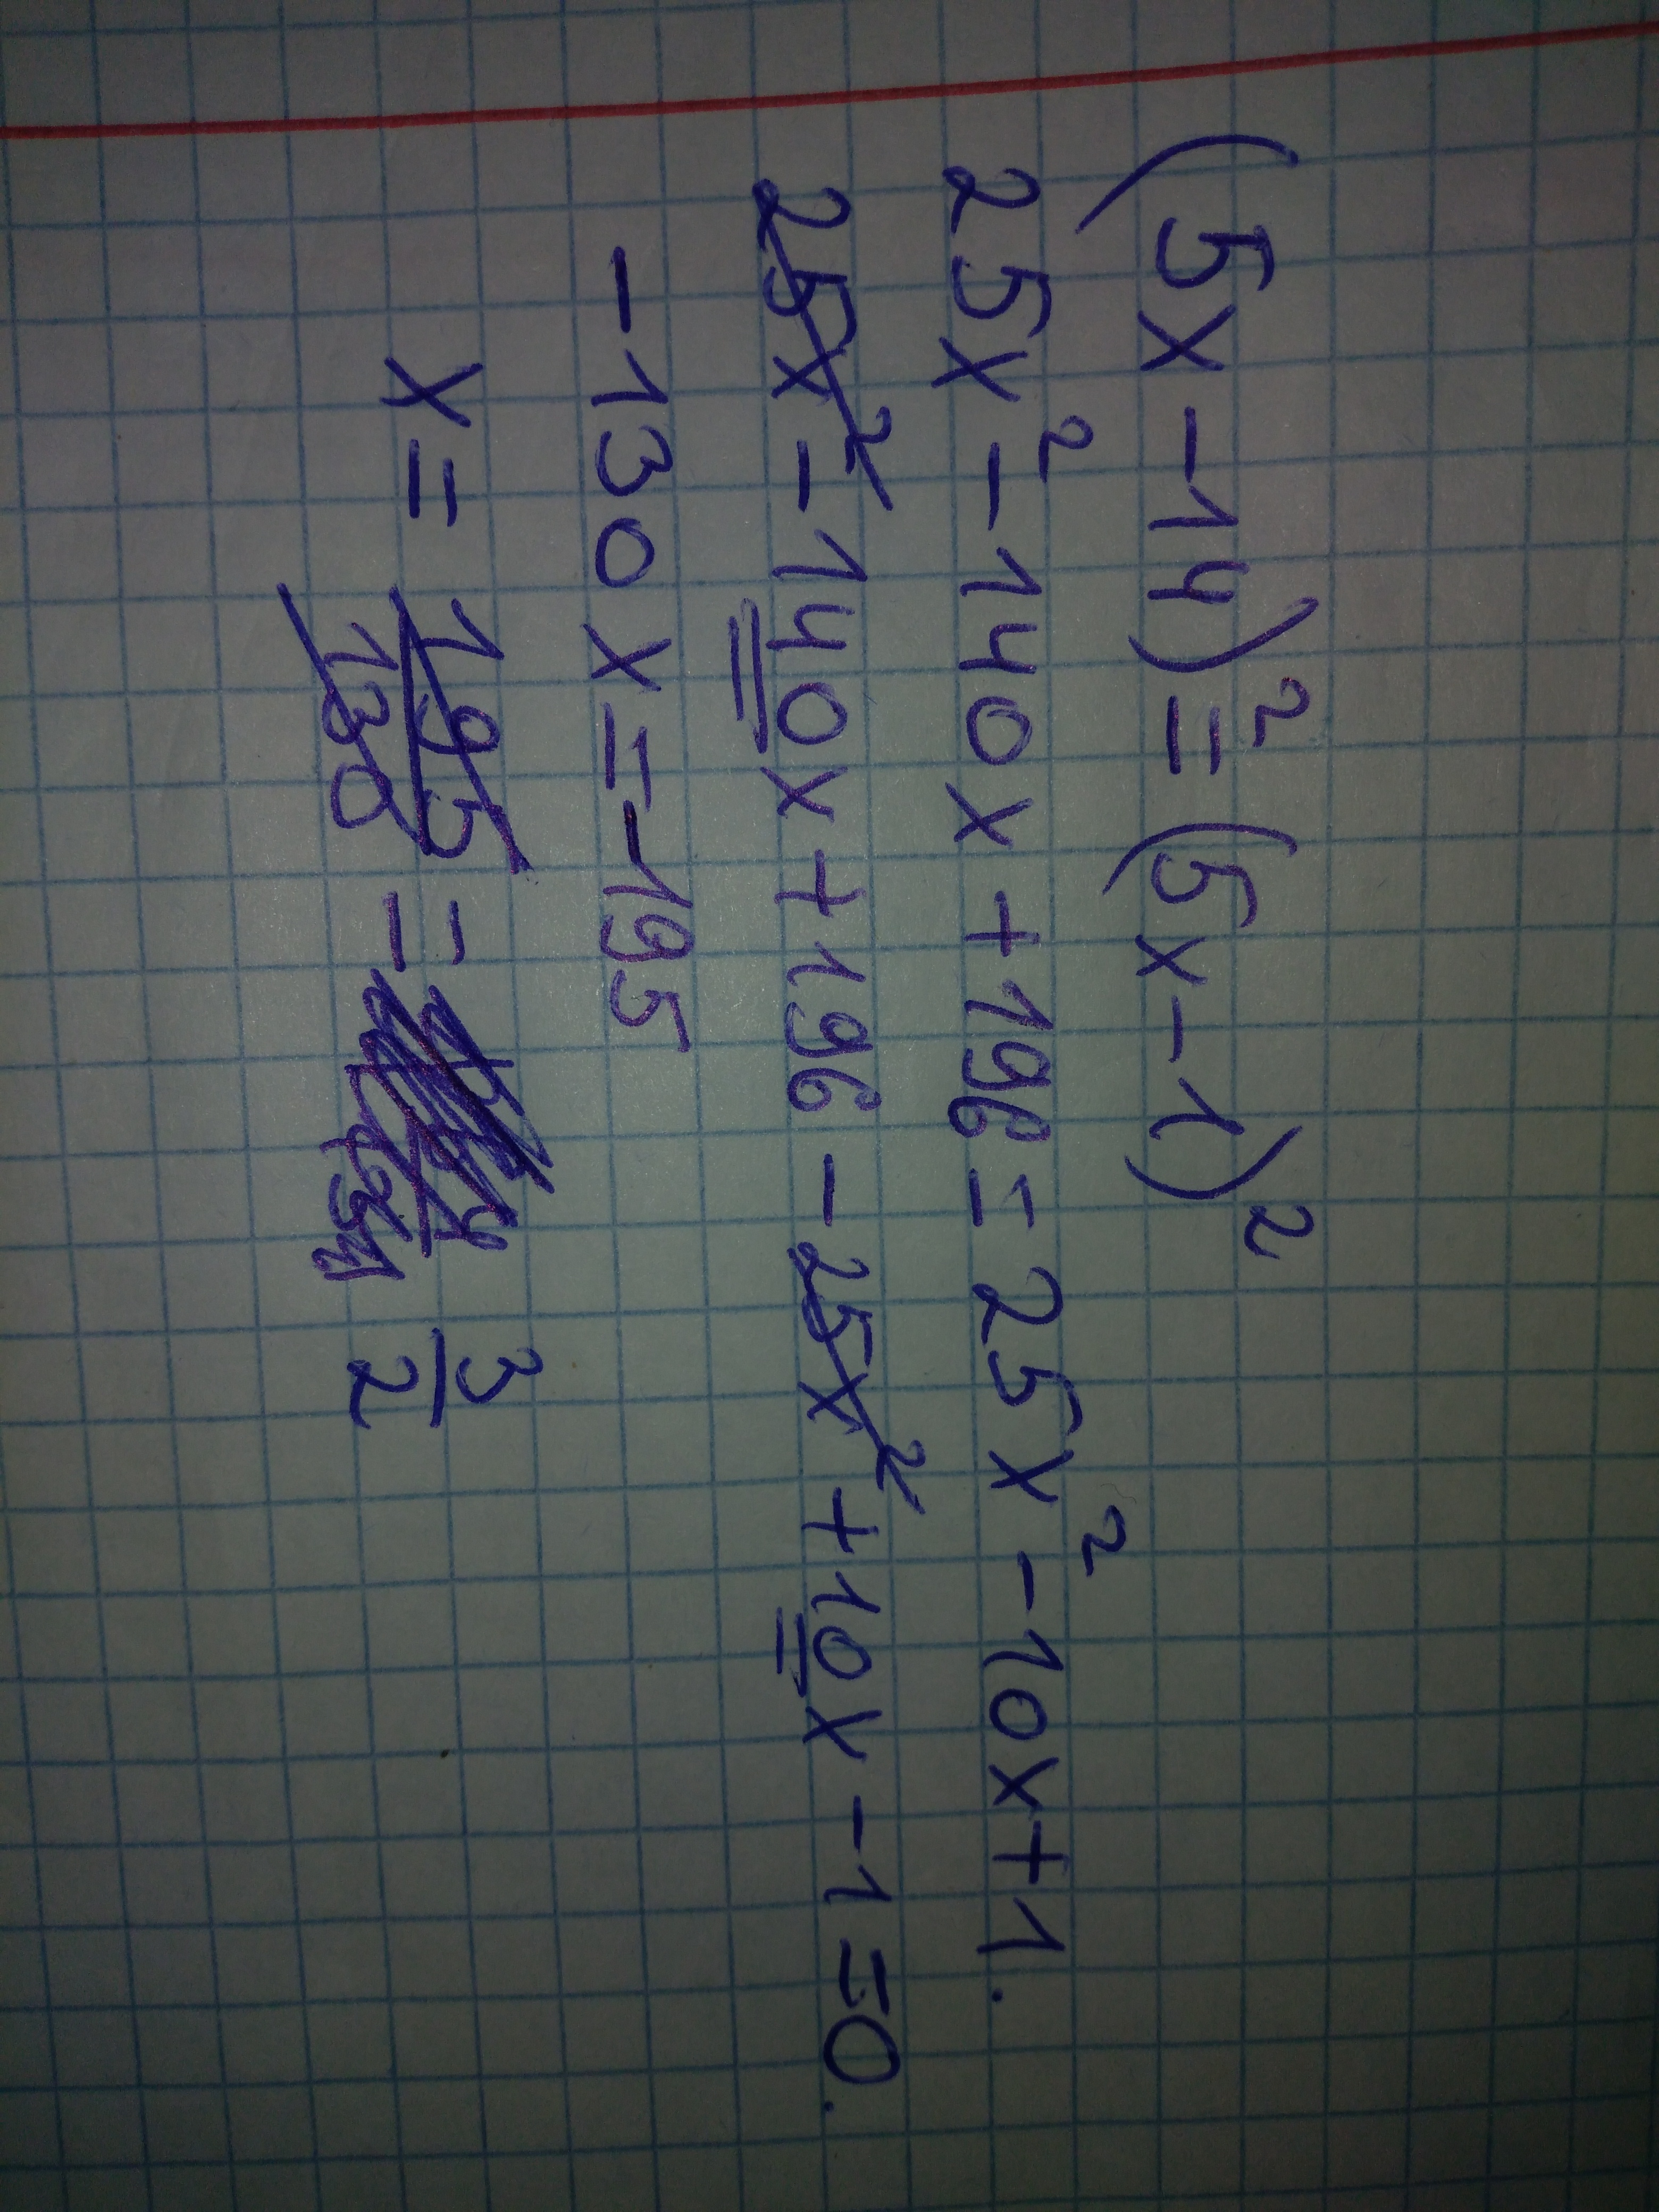 (5x-14)²=(5x-1)²
25x²-140x+196=25x²-10x+1.
25x²-140x+196-25x²+10x-1=0.
-130x=-195
x=195/130= 3/2